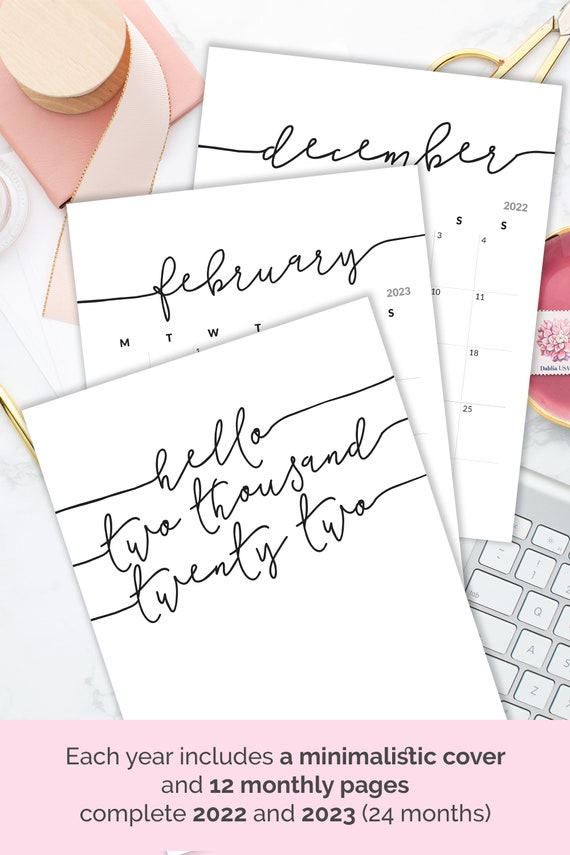 december
2022
S S
3 4
february
2023
10 11
M T W T S
1
18
hello
two thousand
twenty two
25
Dahlia USA
tab
Q
A
S
Z
Each year includes a minimalistic cover
and 12 monthly pages
complete 2022 and 2023 (24 months)